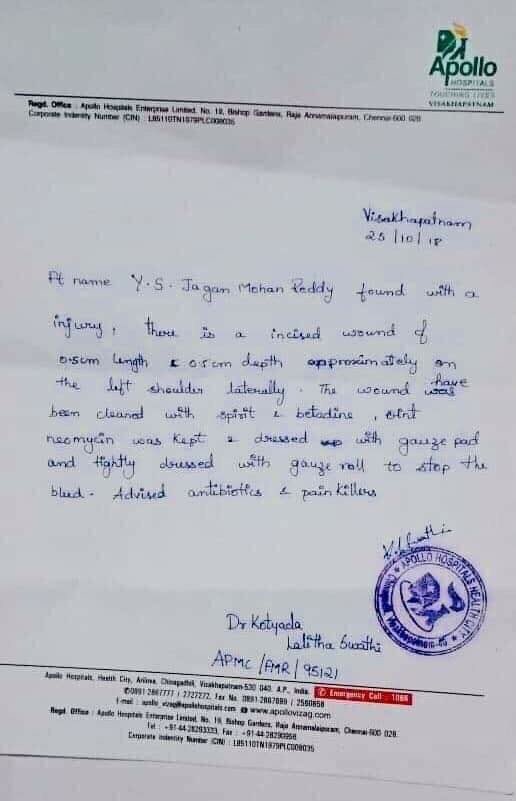 Apollo
HOSPITALS
TOUCHING LIVES
VISAKHAPATNAM
Regd. Office : Apollo Hospitals Enterprise Limited, No. 19, Bishop Gardens, Raja Annamalaipuram, Chennai-600 028
Corporate Indentity Number (CIN) : L85110TN1979PLC008035
Visakhapatnam
25/10/18
Pt name Y.S. Jagan Mohan Reddy found with a
injury, there is a incised wound of
0.5cm length & 0.5cm depth approximately on
the left shoulder laterally. The wound was have
been cleaned with spirit & betadine, oint
neomycin was kept & dressed with gauze pad
and tightly dressed with gauze roll to stop the
bleed. Advised antibiotics & pain killers
APOLLO HOSPITALS HEALTH CITY
Dr Kotyada
Lalitha Swathi
APMC/FMR/95121
Apollo Hospitals, Health City, Arilova, Chinagadhili, Visakhapatnam-530 040. A.P., India. Emergency Call : 1066
0891-2867777 / 2727272, Fax No. 0891-2867899 / 2590858
E-mail : apollo_vizag@apollohospitals.com www.apollovizag.com
Regd. Office : Apollo Hospitals Enterprise Limited, No. 19, Bishop Gardens, Raja Annamalaipuram, Chennai-600 028.
Tel : +91-44-28293333, Fax : +91-44-28290956
Corporate Indentity Number (CIN) : L85110TN1979PLC008035